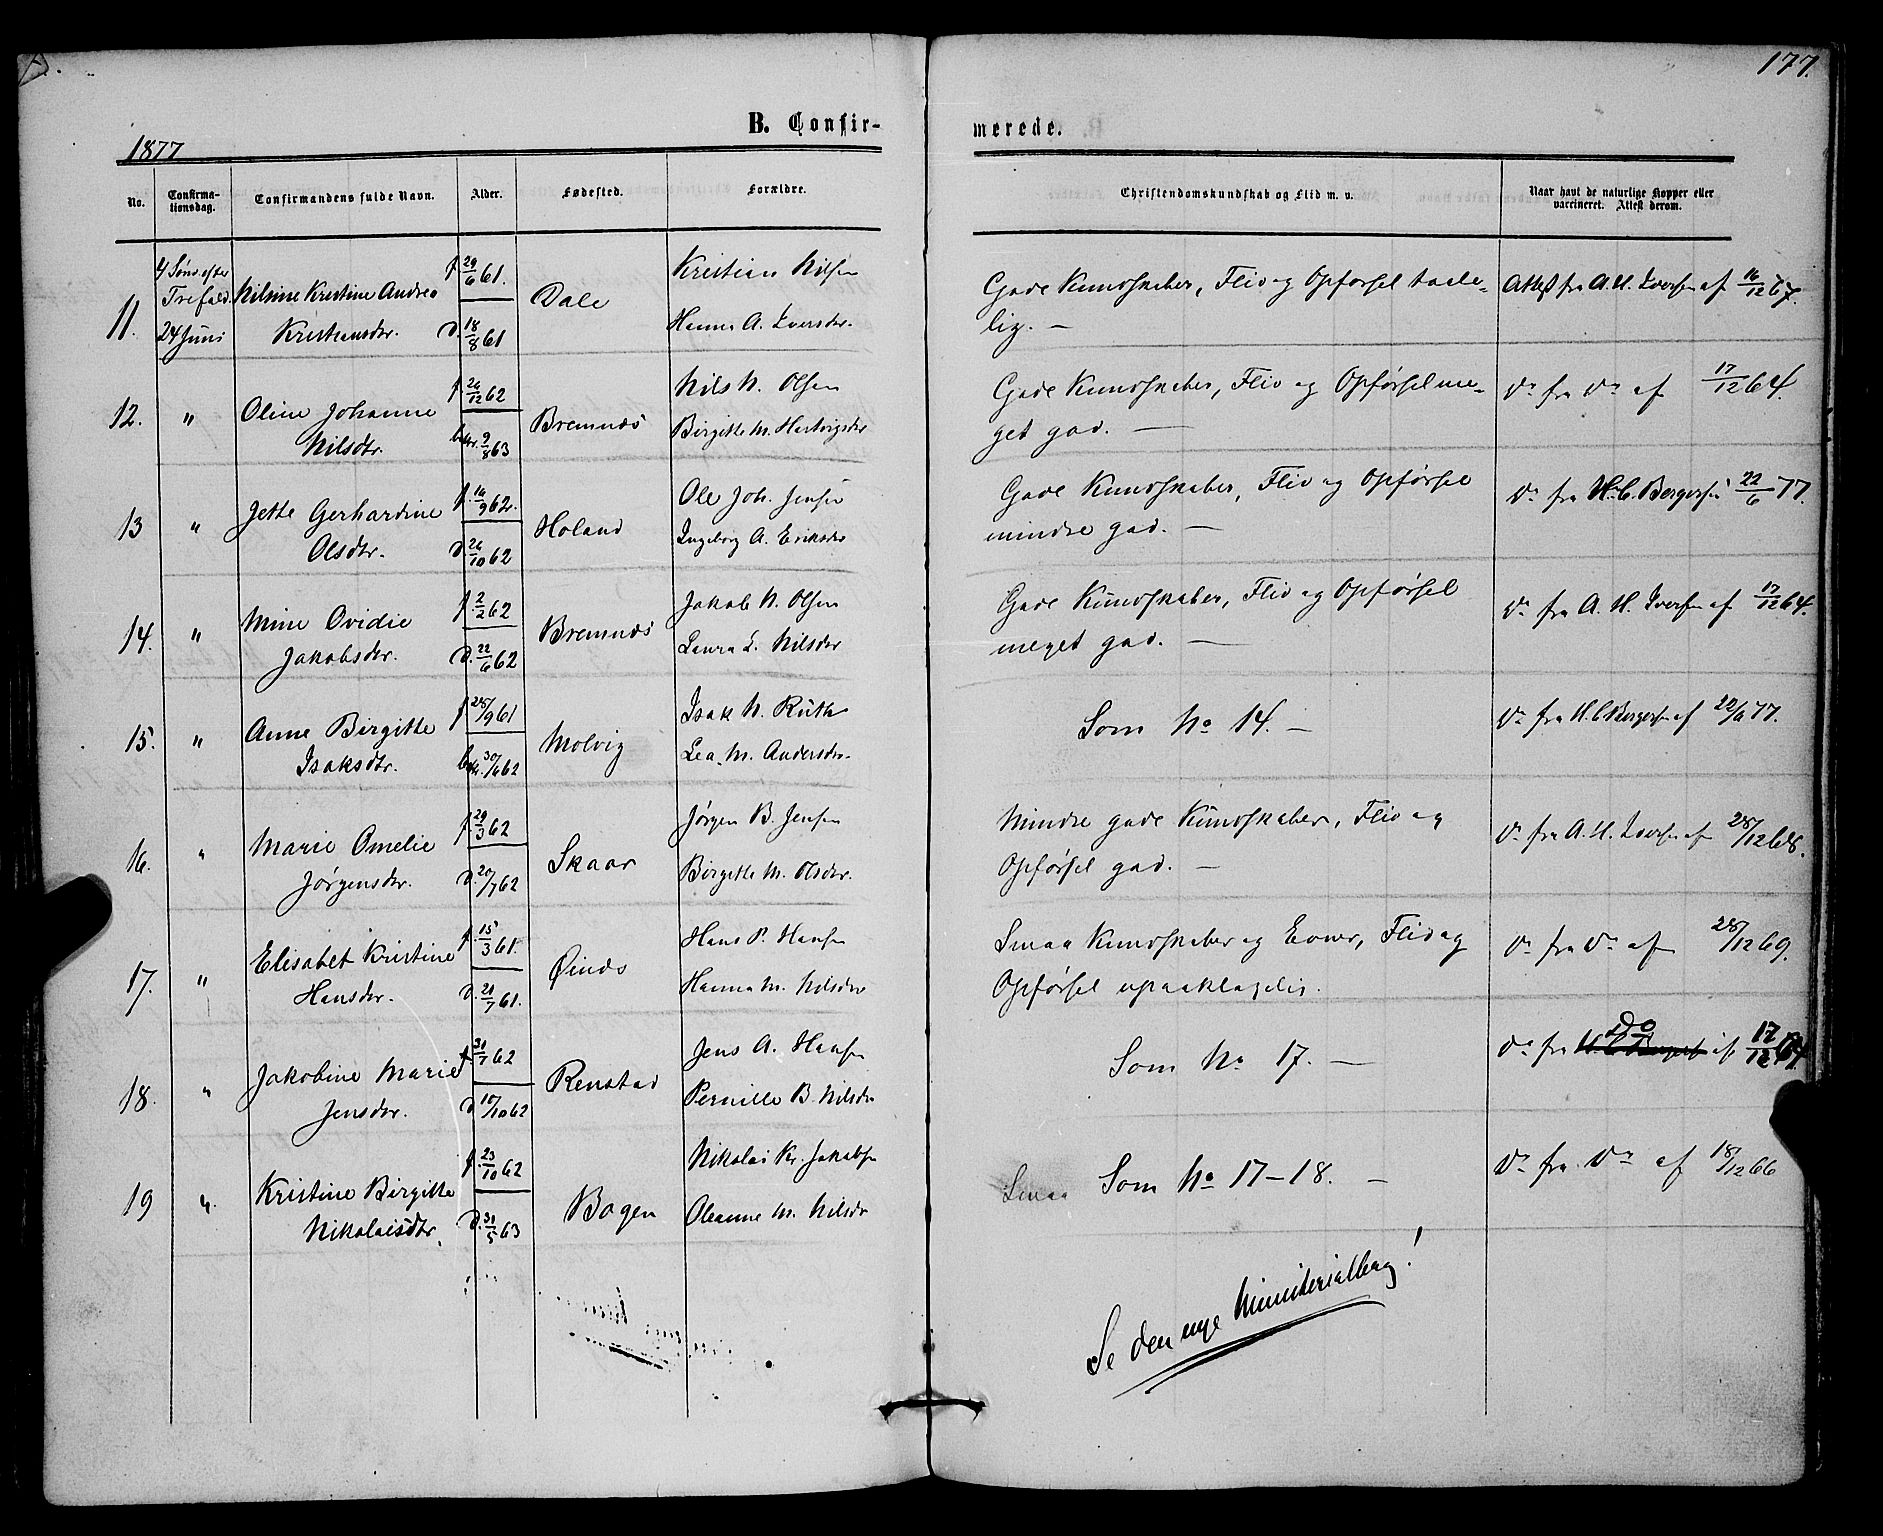 177.
B. Confir-
merede.
1877
No.
Confirma-
tionsdag.
Confirmandens fulde Navn.
Alder.
Fødested.
Forældre.
Christendomskundskab og Flid m. v.
Naar havt de naturlige Kopper eller
vaccineret. Attest derom.
4 Sønd. efter
Trefald.
24 Juni
11.
Nilsine Kristine Andrea
Kristiansdtr.
f 29/6 61.
d. 18/8 61
Dale
Kristian Nilsen
Hanna A. Iversdtr.
Gode Kundskaber, Flid og Opførsel taale-
lig. —
Attest fra A. H. Iversen af 16/12 67.
12. "
Oline Johanne
Nilsdtr.
f 26/12 62
bekr. 9/8 63
Bremnæs
Nils N. Olsen
Birgitte M. Hartvigsdtr
Gode Kundskaber, Flid og Opførsel me-
get god. —
do fra do af 17/12 64.
13 "
Jette Gerhardine
Olsdtr.
f. 16/9 62.
d. 26/10 62
Holand
Ole Joh. Jensen
Ingeborg A. Eriksdtr
Gode Kundskaber, Flid og Opførsel
mindre god. —
do fra H. C. Bergersen 22/6 77.
14. "
Mine Ovidie
Jakobsdtr.
f. 2/2 62
d. 22/6 62
Bremnæs
Jakob N. Olsen
Laura L. Nilsdtr
Gode Kundskaber, Flid og Opførsel
meget god. —
do fra A. H. Iversen af 17/12 64.
15. "
Anne Birgitte
Isaksdtr.
f 28/9 61
bekr. 30/6 62
Molvig
Isak N. Ruth
Lea M. Andersdtr.
Som No 14. —
do fra H. C. Bergersen af 22/6 77.
16. "
Marie Omelie
Jørgensdtr.
f. 29/3 62
d. 20/7 62
Skaar
Jørgen B. Jensen
Birgitte M. Olsdtr.
Mindre gode Kundskaber, Flid og
Opførsel god. —
do fra A. H. Iversen af 28/12 68.
17. "
Elisabet Kristine
Hansdtr.
f. 15/3 61.
d. 21/7 61.
Øinæs
Hans P. Hansen
Hanna M. Nilsdtr
Smaa Kundskaber og Evner, Flid og
Opførsel upaaklagelig.
do fra do af 28/12 69.
18. "
Jakobine Marie
Jensdtr.
f. 31/7 62
d. 10/10 62
Renstad
Jens A. Hansen
Pernille B. Nilsdtr
Som No 17. —
Do
do fra H. C. Bergersen af 17/12 64
19 "
Kristine Birgitte
Nikolaisdtr.
f. 23/10 62
d. 31/5 63
Bogen
Nikolai Kr. Jakobsen
Oleanne M. Nilsdtr
Smaa Som No 17-18. —
do fra do af 18/12 66
Se den nye Ministerialbog!